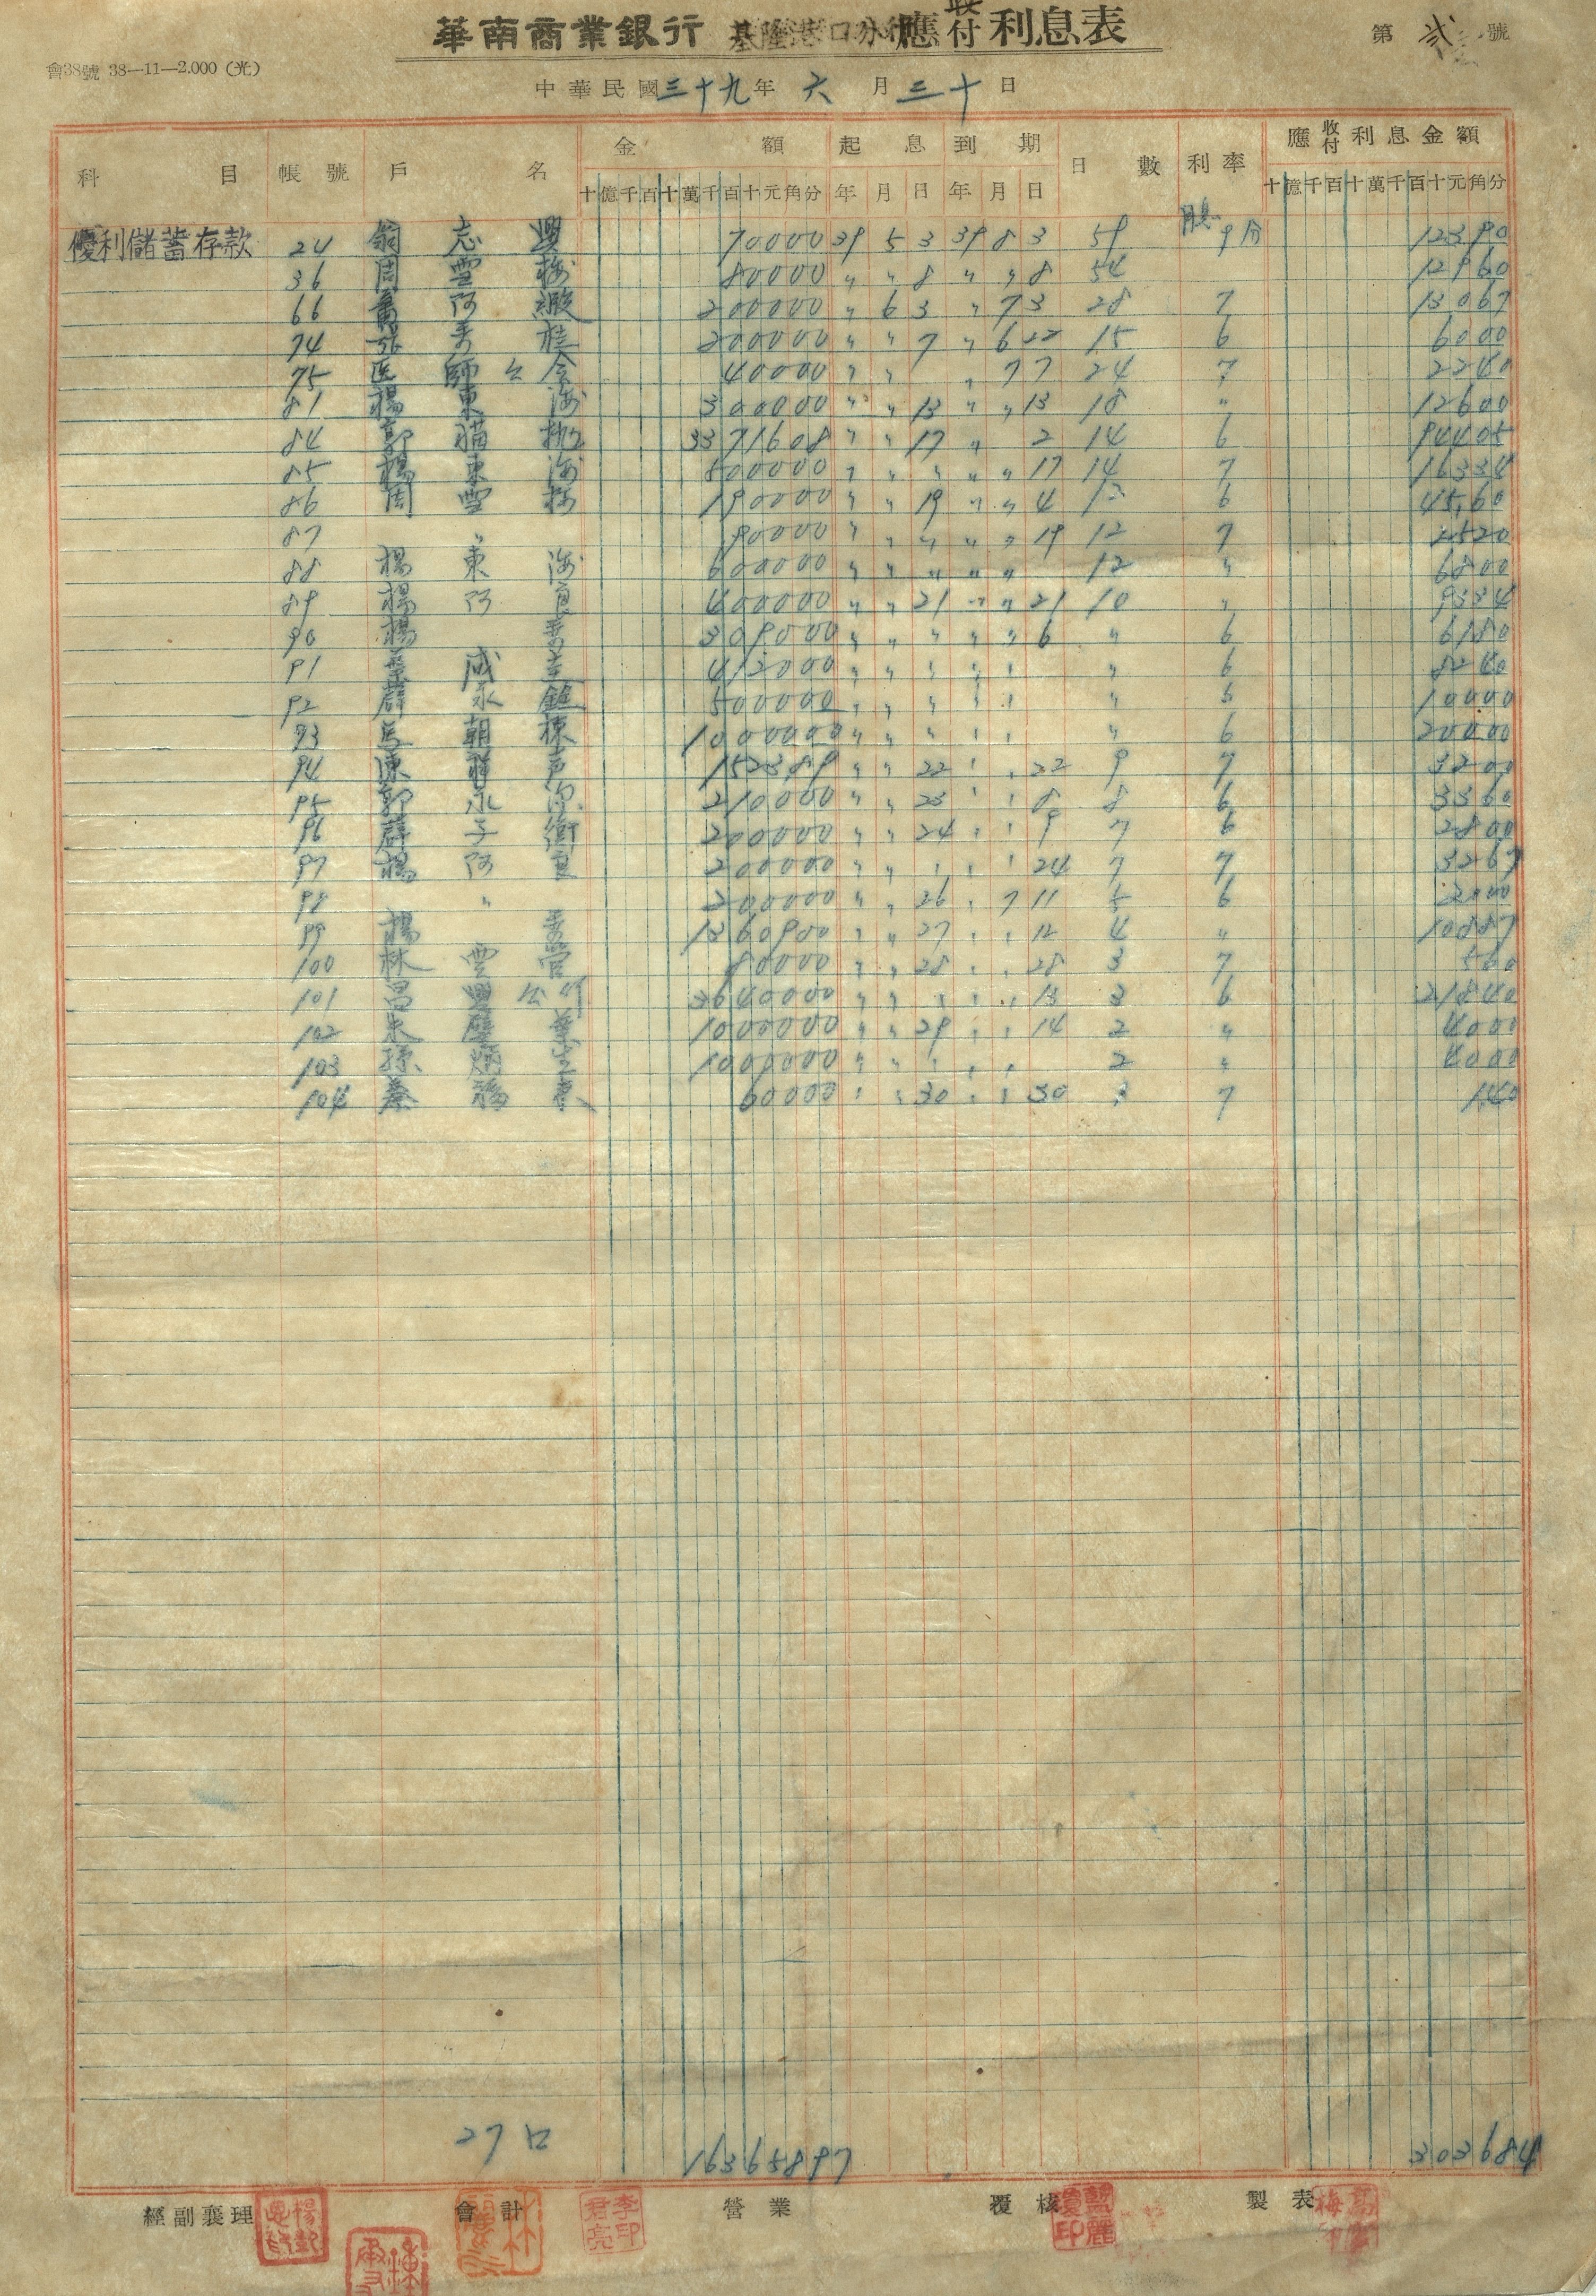 華南商業銀行 基隆港口分行 應收付利息表
第 弍 號
會38號 38—11—2.000 (光)
中華民國三十九年 六 月 三十 日
科目 帳號 戶名 金額 起息 到期 日數 利率 應收付利息金額
十億千百十萬千百十元角分 年 月 日 年 月 日 十億千百十萬千百十元角分
優利儲蓄存款 24 翁志興 70000 39 5 3 39 8 3 59 9分 12390
36 周雪梅 80000 〃 〃 8 〃 〃 8 54 12960
66 阿緞 200000 〃 6 3 〃 7 3 28 7 13067
74 張秀桂 200000 〃 〃 7 〃 6 22 15 6 6000
75 医師公会 40000 〃 〃 〃 7 7 24 7 2240
81 楊東海 300000 〃 〃 13 〃 〃 13 18 〃 12600
84 郭 3371608 〃 〃 17 〃 2 14 6 94405
85 楊東海 500000 〃 〃 〃 〃 〃 17 14 7 16334
86 周雪梅 190000 〃 〃 19 〃 〃 4 12 6 4560
87 〃 90000 〃 〃 〃 〃 〃 19 12 7 2520
88 楊東海 600000 〃 〃 〃 〃 〃 12 〃 6800
89 楊阿 400000 〃 〃 21 〃 〃 21 10 〃 9334
90 楊秀 309000 〃 〃 〃 〃 〃 6 〃 6 6180
91 葉咸 412000 〃 〃 〃 〃 〃 〃 6 8240
92 薛永 500000 〃 〃 〃 〃 〃 〃 6 10000
93 朝棟 1000000 〃 〃 〃 〃 〃 〃 6 20000
94 陳祥声 152389 〃 〃 22 〃 〃 22 9 7 3200
95 郭永 210000 〃 〃 23 〃 〃 8 8 6 3360
96 薛子衡 200000 〃 〃 24 〃 〃 9 7 6 2800
97 楊阿 200000 〃 〃 〃 〃 〃 24 7 7 3267
98 〃 200000 〃 〃 26 〃 7 11 5 6 2000
99 楊秀 1360900 〃 〃 27 〃 〃 12 4 〃 10887
100 林雲 80000 〃 〃 28 〃 〃 28 3 7 560
101 昌興公司 3640000 〃 〃 〃 〃 〃 13 3 6 21840
102 朱 1000000 〃 〃 29 〃 〃 14 2 〃 4000
103 孫炳生 1000000 〃 〃 〃 〃 〃 2 〃 4000
104 蔡 60000 〃 〃 30 〃 〃 30 7 140
27口 16365897 303684
經副襄理 會計 營業 覆核 製表
李印君亮